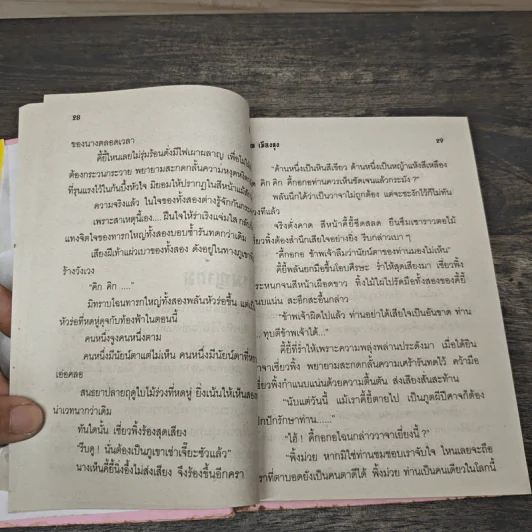 28
ของนางตลอดเวลา
คี้ยี้ไหนเลยไม่รุ่มร้อนดังมีไฟเผาผลาญ เพื่อไม่ให้
ต้องกระวนกระวาย พยายามสะกดกลั้นความหงุดหงิด
ที่รุนแรงไว้ในก้นบึ้งหัวใจ มิยอมให้ปรากฏในสีหน้าแม้
ความจริงแล้ว ในใจของทั้งสองต่างรู้จักกัน
เพราะสาเหตุนี้เอง.... ฝืนใจให้ร่าเริงแจ่มใส กลับ
แทงจิตใจของทารกใหญ่ทั้งสองบอบช้ำรันทดกว่าเดิม
เสียงฝีเท้าแผ่วเบาของทั้งสอง ดังอยู่ในทางภูเขา
ร้างวังเวง
"คิก คิก ...."
มิทราบไฉนทารกใหญ่ทั้งสองพลันหัวร่อขึ้น แต่
หัวร่อที่หดหู่ดุจกับท้องฟ้าในตอนนี้
คนหนึ่งจูงคนหนึ่งตาม
คนหนึ่งมีนัยน์ตาแต่ไม่เห็น คนหนึ่งมีนัยน์ตาที่
เย่อคลอ
สนธยาปลายฤดูใบไม้ร่วงที่หดหู่ ยิ่งเน้นให้เห็นสอง
น่าเวทนากว่าเดิม
ทันใดนั้น เซี่ยวพิ้งร้องสุดเสียง
"รีบดู ! นั่นต้องเป็นภูเขาเซ่าเจี๊ยะซัวแล้ว"
นางเห็นคี้ยี้นิ่งอึ้งไม่ส่งเสียง จึงร้องขึ้นอีกครา
29
"ด้านหนึ่งเป็นหินสีเขียว ด้านหนึ่งเป็นหญ้าแห้งสีเหลือง
คิก คิก! คี้กอกอท่านควรเห็นชัดเจนแล้วกระมัง ?"
พลันนึกได้ว่าเป็นวาจาไม่ถูกต้อง แต่จะชะงักไว้ก็ไม่ทัน
จริงดั่งคาด สีหน้าคี้ยี้ซีดสลด ยืนซึมเซาราวตอไม้
เซี่ยวพิ้งต้องสำนึกเสียใจอย่างยิ่ง รีบกล่าวเบา ๆ
"คี้กอกอ ข้าพเจ้าลืมว่านัยน์ตาของท่านมองไม่เห็น"
คี้ยี้พลันยกมือขึ้นโอบศีรษะ ร่ำไห้สุดเสียงมา เซี่ยวพิ้ง
ตระหนกจนสีหน้าเผือดขาว ทิ้งไม้ไผ่ไปรัดมือทั้งสองของคี้ยี้
แนบแน่น สะอึกสะอื้นกล่าว
"ข้าพเจ้าผิดไปแล้ว ท่านอย่าได้เสียใจเป็นอันขาด ท่าน
... ทุบตีข้าพเจ้าได้..."
คี้ยี้ที่ร่ำไห้เพราะความพลุ่งพล่านประดังมา เมื่อได้ยิน
วาจาเซี่ยวพิ้ง พยายามสะกดกลั้นความเศร้ารันทดไว้ คว้ามือ
เซี่ยวพิ้งกำแนบแน่นด้วยความตื่นตัน ส่งเสียงสั่นสะท้าน
"นับแต่วันนี้ แม้เราคี้ยี้ตายไป เป็นภูตผีปีศาจก็ต้อง
ปกปักรักษาท่าน......"
"ไฮ้ ! คี้กอกอไฉนกล่าววาจาเยี่ยงนี้ ?"
"พิ้งม่วย หากมิใช่ท่านชมชอบเราจับใจ ไหนเลยจะถือ
เราที่ตาบอดยังเป็นคนตาดีได้ พิ้งม่วย ท่านเป็นคนเดียวในโลกนี้